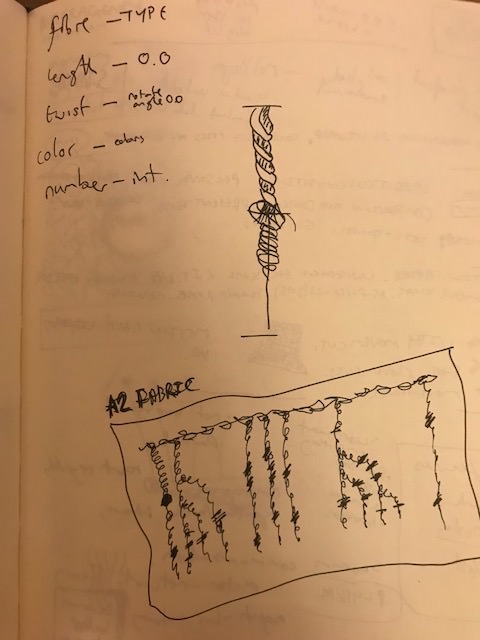 fibre - TYPE
length - 0.0
twist - rotate
angle 00
color - colors
number - int.
A2 FABRIC